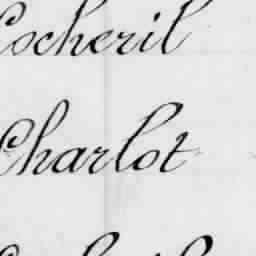 Cocheril
Charlot